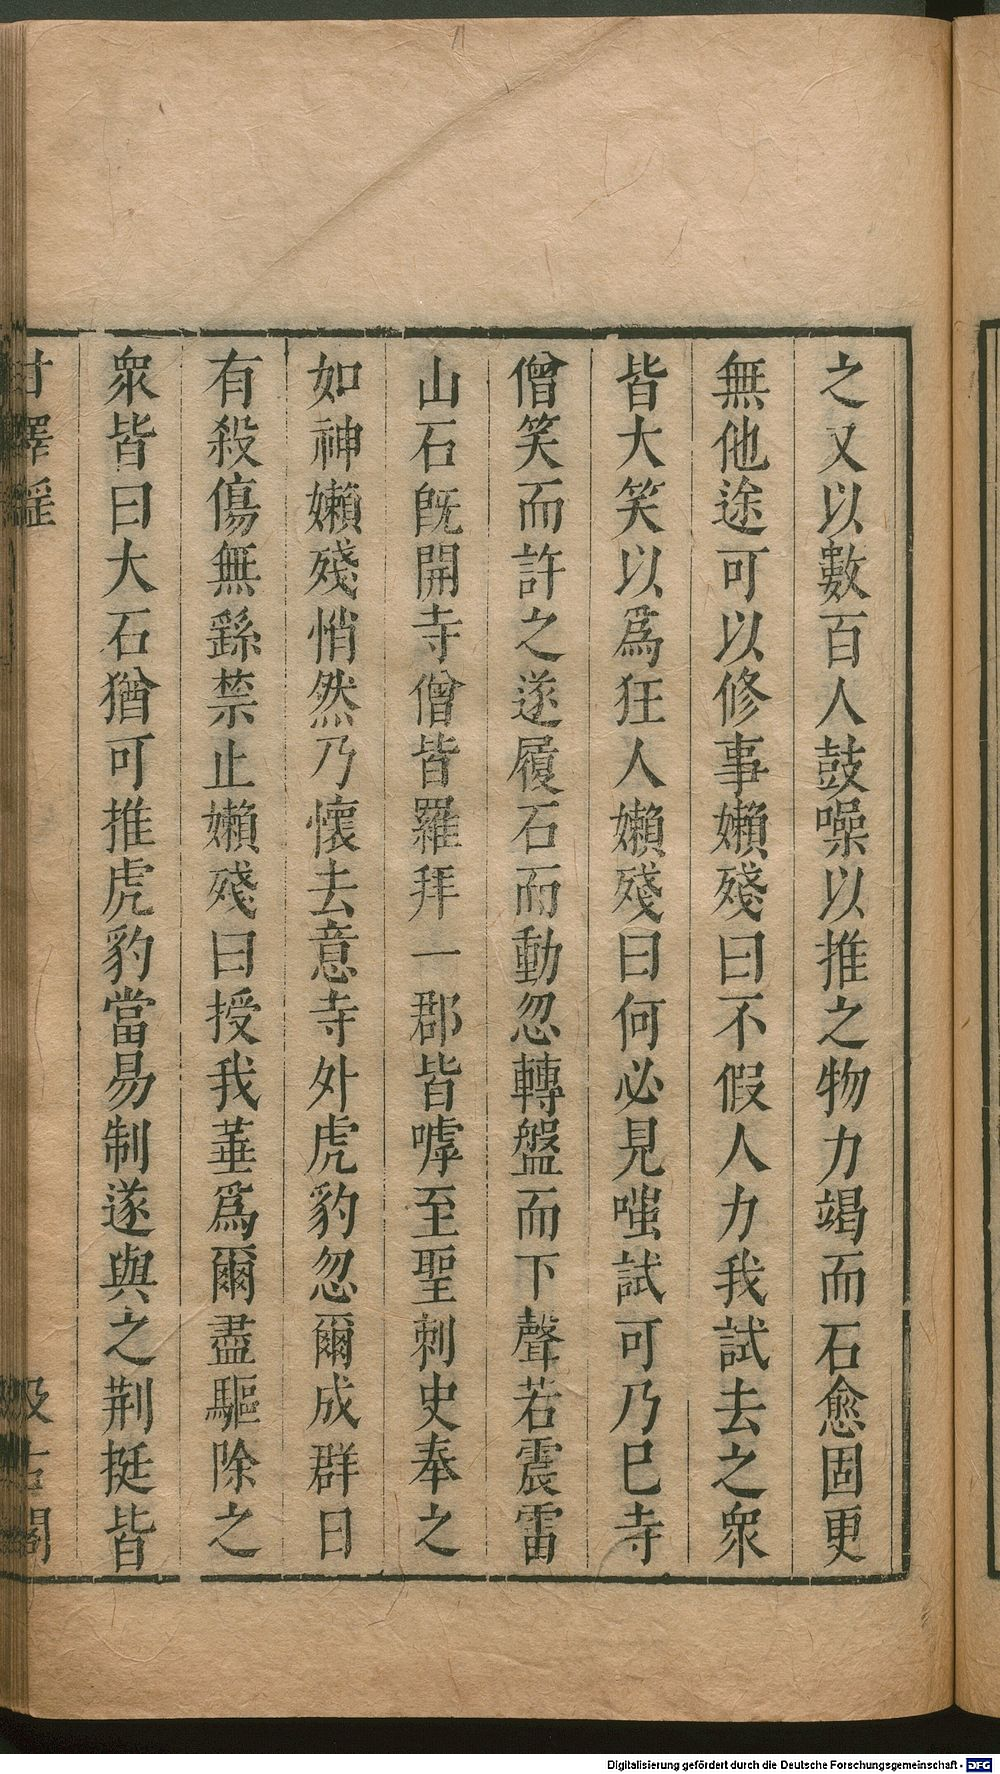 之又以數百人鼓噪以推之物力竭而石愈固更
無他途可以修事嬾殘曰不假人力我試去之衆
皆大笑以爲狂人嬾殘曰何必見嗤試可乃已寺
僧笑而許之遂履石而動忽轉盤而下聲若震雷
山石旣開寺僧皆羅拜一郡皆嘑至聖刺史奉之
如神嬾殘悄然乃懷去意寺外虎豹忽爾成群日
有殺傷無繇禁止嬾殘曰授我箠爲爾盡驅除之
衆皆曰大石猶可推虎豹當易制遂與之荆挺皆
甘澤謠
汲古閣
Digitalisierung gefördert durch die Deutsche Forschungsgemeinschaft - DFG